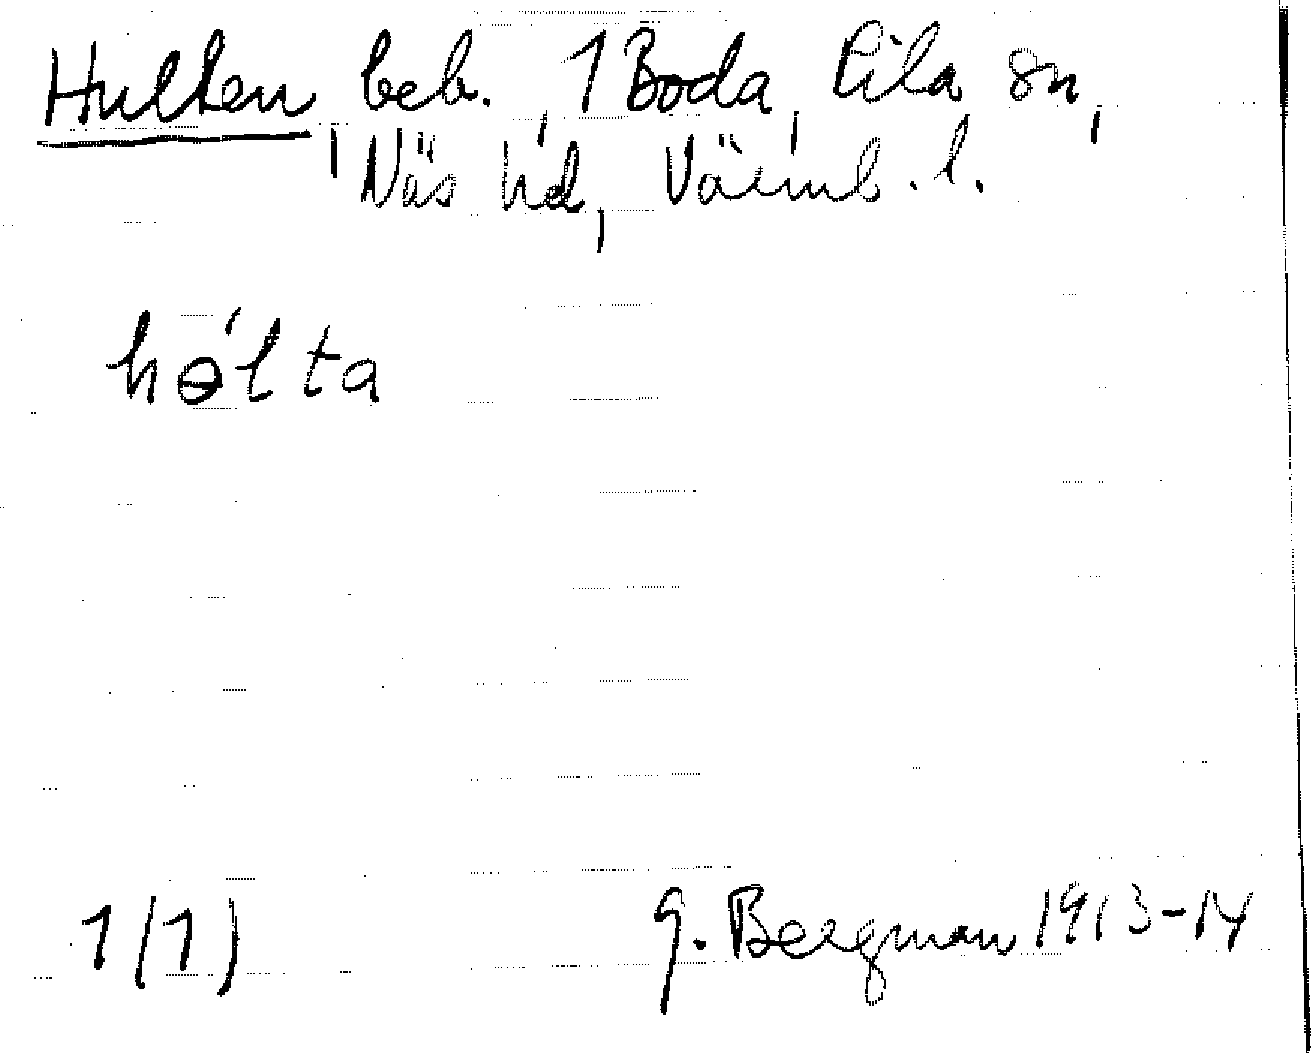 Hulten, beb., 1 Boda, Eila sn,
Näs hd, Värml. l.
hɵ́lta
1(1) G. Bergman 1913-14